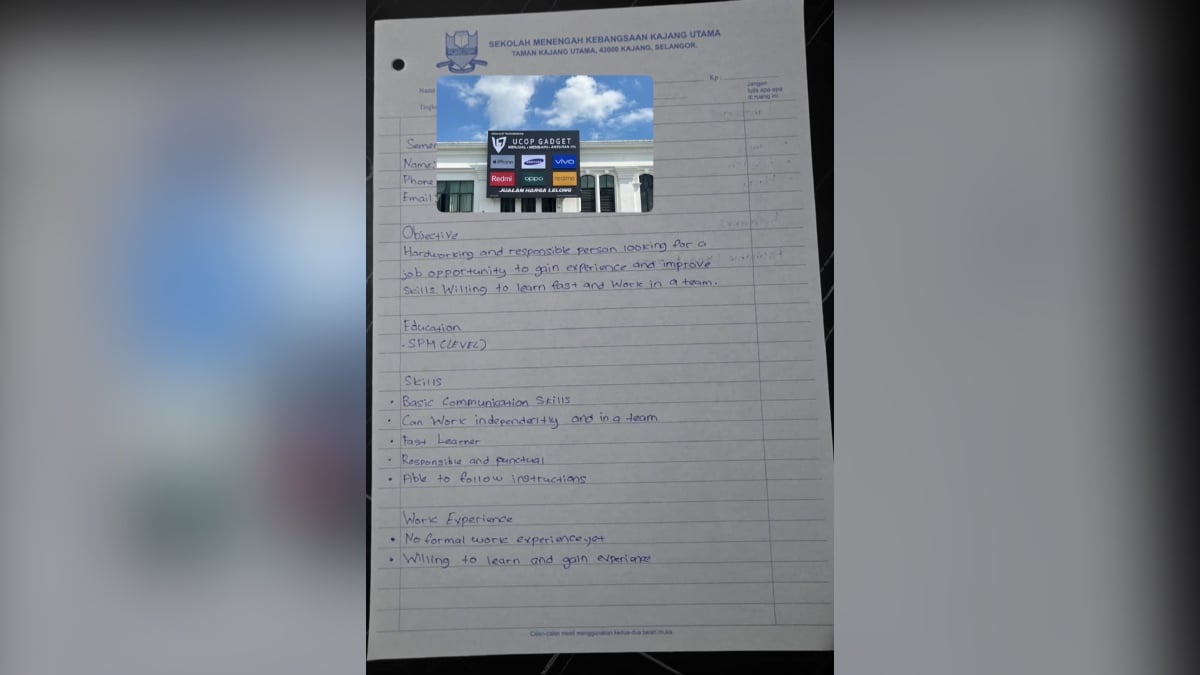 SEKOLAH MENENGAH KEBANGSAAN KAJANG UTAMA
TAMAN KAJANG UTAMA, 43000 KAJANG, SELANGOR.
Kp:
Jangan
tulis apa-apa
di ruang ini
Nama
UCOP GADGET
iPhone SAMSUNG vivo
Redmi oppo realme
JUALAN HARGA LELONG
Name:
Phone
Email
Objective
Hardworking and responsible person looking for a
job opportunity to gain experience and improve
skills. Willing to learn fast and work in a team.
Education
. SPM (LEVEL)
Skills
• Basic Communication Skills
• Can Work independently and in a team
• Fast Learner
• Responsible and punctual
• Able to follow instructions
Work Experience
• No formal work experience yet
• Willing to learn and gain experience
Calon-calon mesti menggunakan kedua-dua belah muka